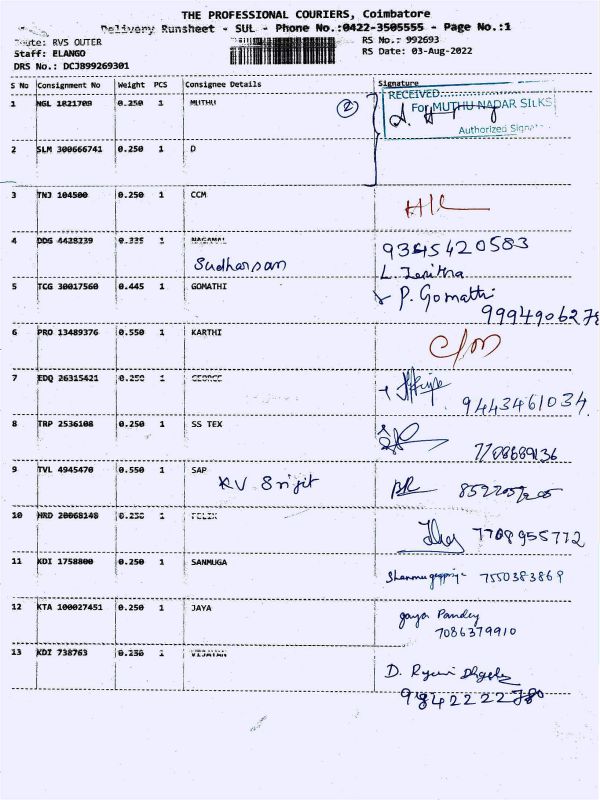 THE PROFESSIONAL COURIERS, Coimbatore
Delivery Runsheet - SUL - Phone No.:0422-3505555 - Page No.:1
Route: RVS OUTER
RS No.: 992693
Staff: ELANGO
RS Date: 03-Aug-2022
DRS No.: DCJB99269301
S No Consignment No Weight PCS Consignee Details Signature
1 NGL 1821709 0.250 1 MUTHU
2
RECEIVED
For MUTHU NADAR SILKS
Authorized
2 SLM 300666741 0.250 1 D
3 TNJ 104500 0.250 1 CCM
4 DDG 4428239 0.335 1 NAGAMAL 9345420583
Sudharsan L.
5 TCG 30017560 0.445 1 GOMATHI P. Gomathi
6 PRO 13489376 0.550 1 KARTHI
7 EDQ 26315421 0.250 1 GEORGE
9443461034
8 TRP 2536108 0.250 1 SS TEX
7708689136
9 TVL 4945470 0.550 1 SAP
KV Srijit
10 HRD 20068148 0.250 1 FELIX
7708955772
11 KDI 1758800 0.250 1 SANMUGA
7550383869
12 KTA 100027451 0.250 1 JAYA
Jaya Pandey
7086379910
13 KDI 738763 0.250 1 VIJAYAN
D.